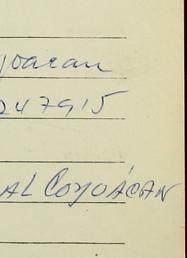 yoacan
247915
AL COYOÁCAN